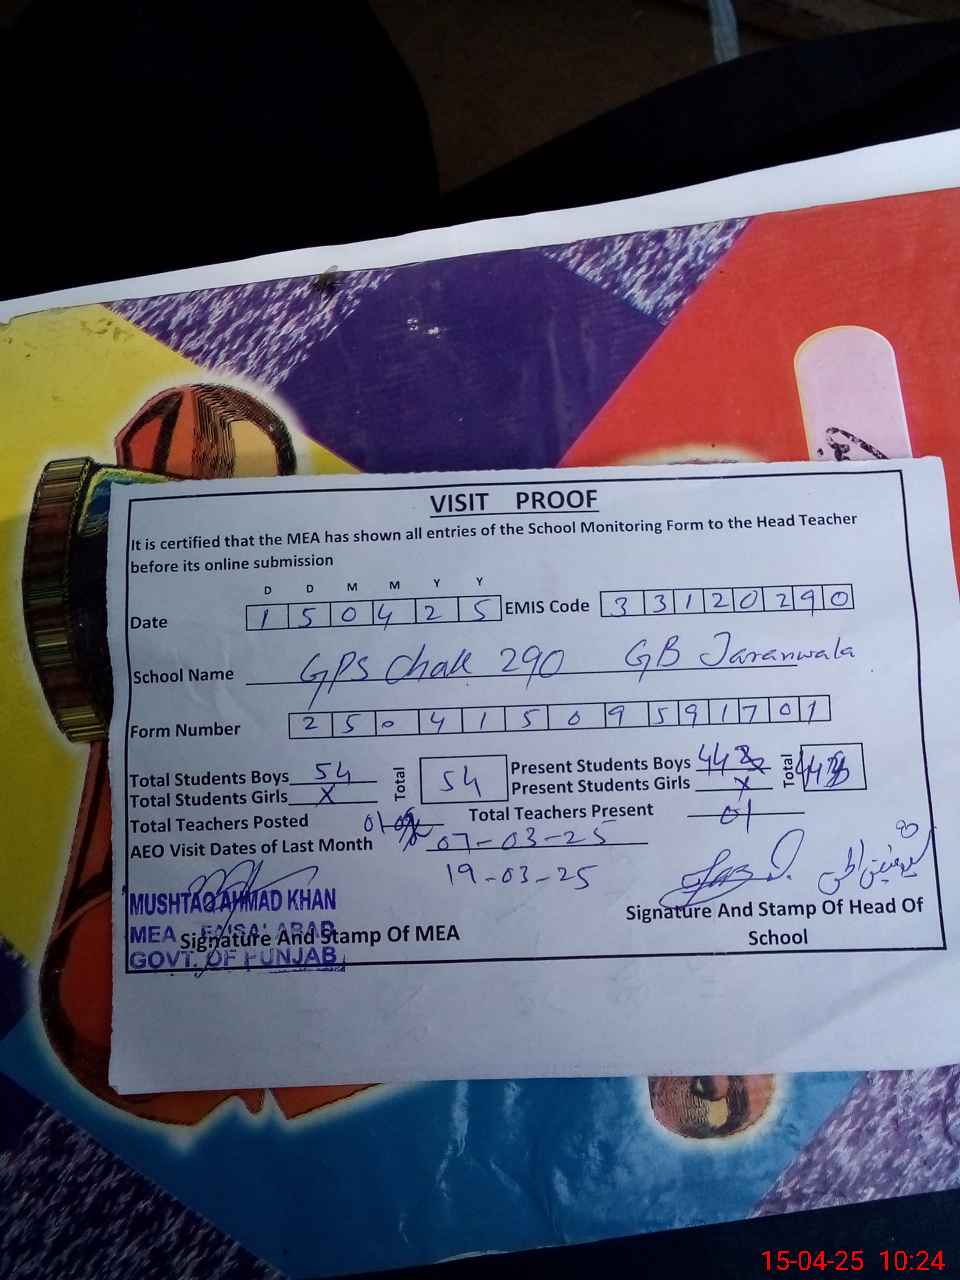 VISIT PROOF
It is certified that the MEA has shown all entries of the School Monitoring Form to the Head Teacher
before its online submission
D D M M Y Y
Date 1 5 0 4 2 5 EMIS Code 3 3 1 2 0 2 9 0
School Name GPS Chak 290 GB Jaranwala
Form Number 2 5 0 4 1 5 0 9 5 9 1 7 0 1
Total Students Boys 54 Total 54 Present Students Boys 44 Total
Total Students Girls X Present Students Girls X
Total Teachers Posted 01 Total Teachers Present 01
AEO Visit Dates of Last Month 07-03-25
19-03-25
MUSHTAQ AHMAD KHAN
MEA FAISALABAD
GOVT. OF PUNJAB
Signature And Stamp Of MEA
Signature And Stamp Of Head Of
School
15-04-25 10:24